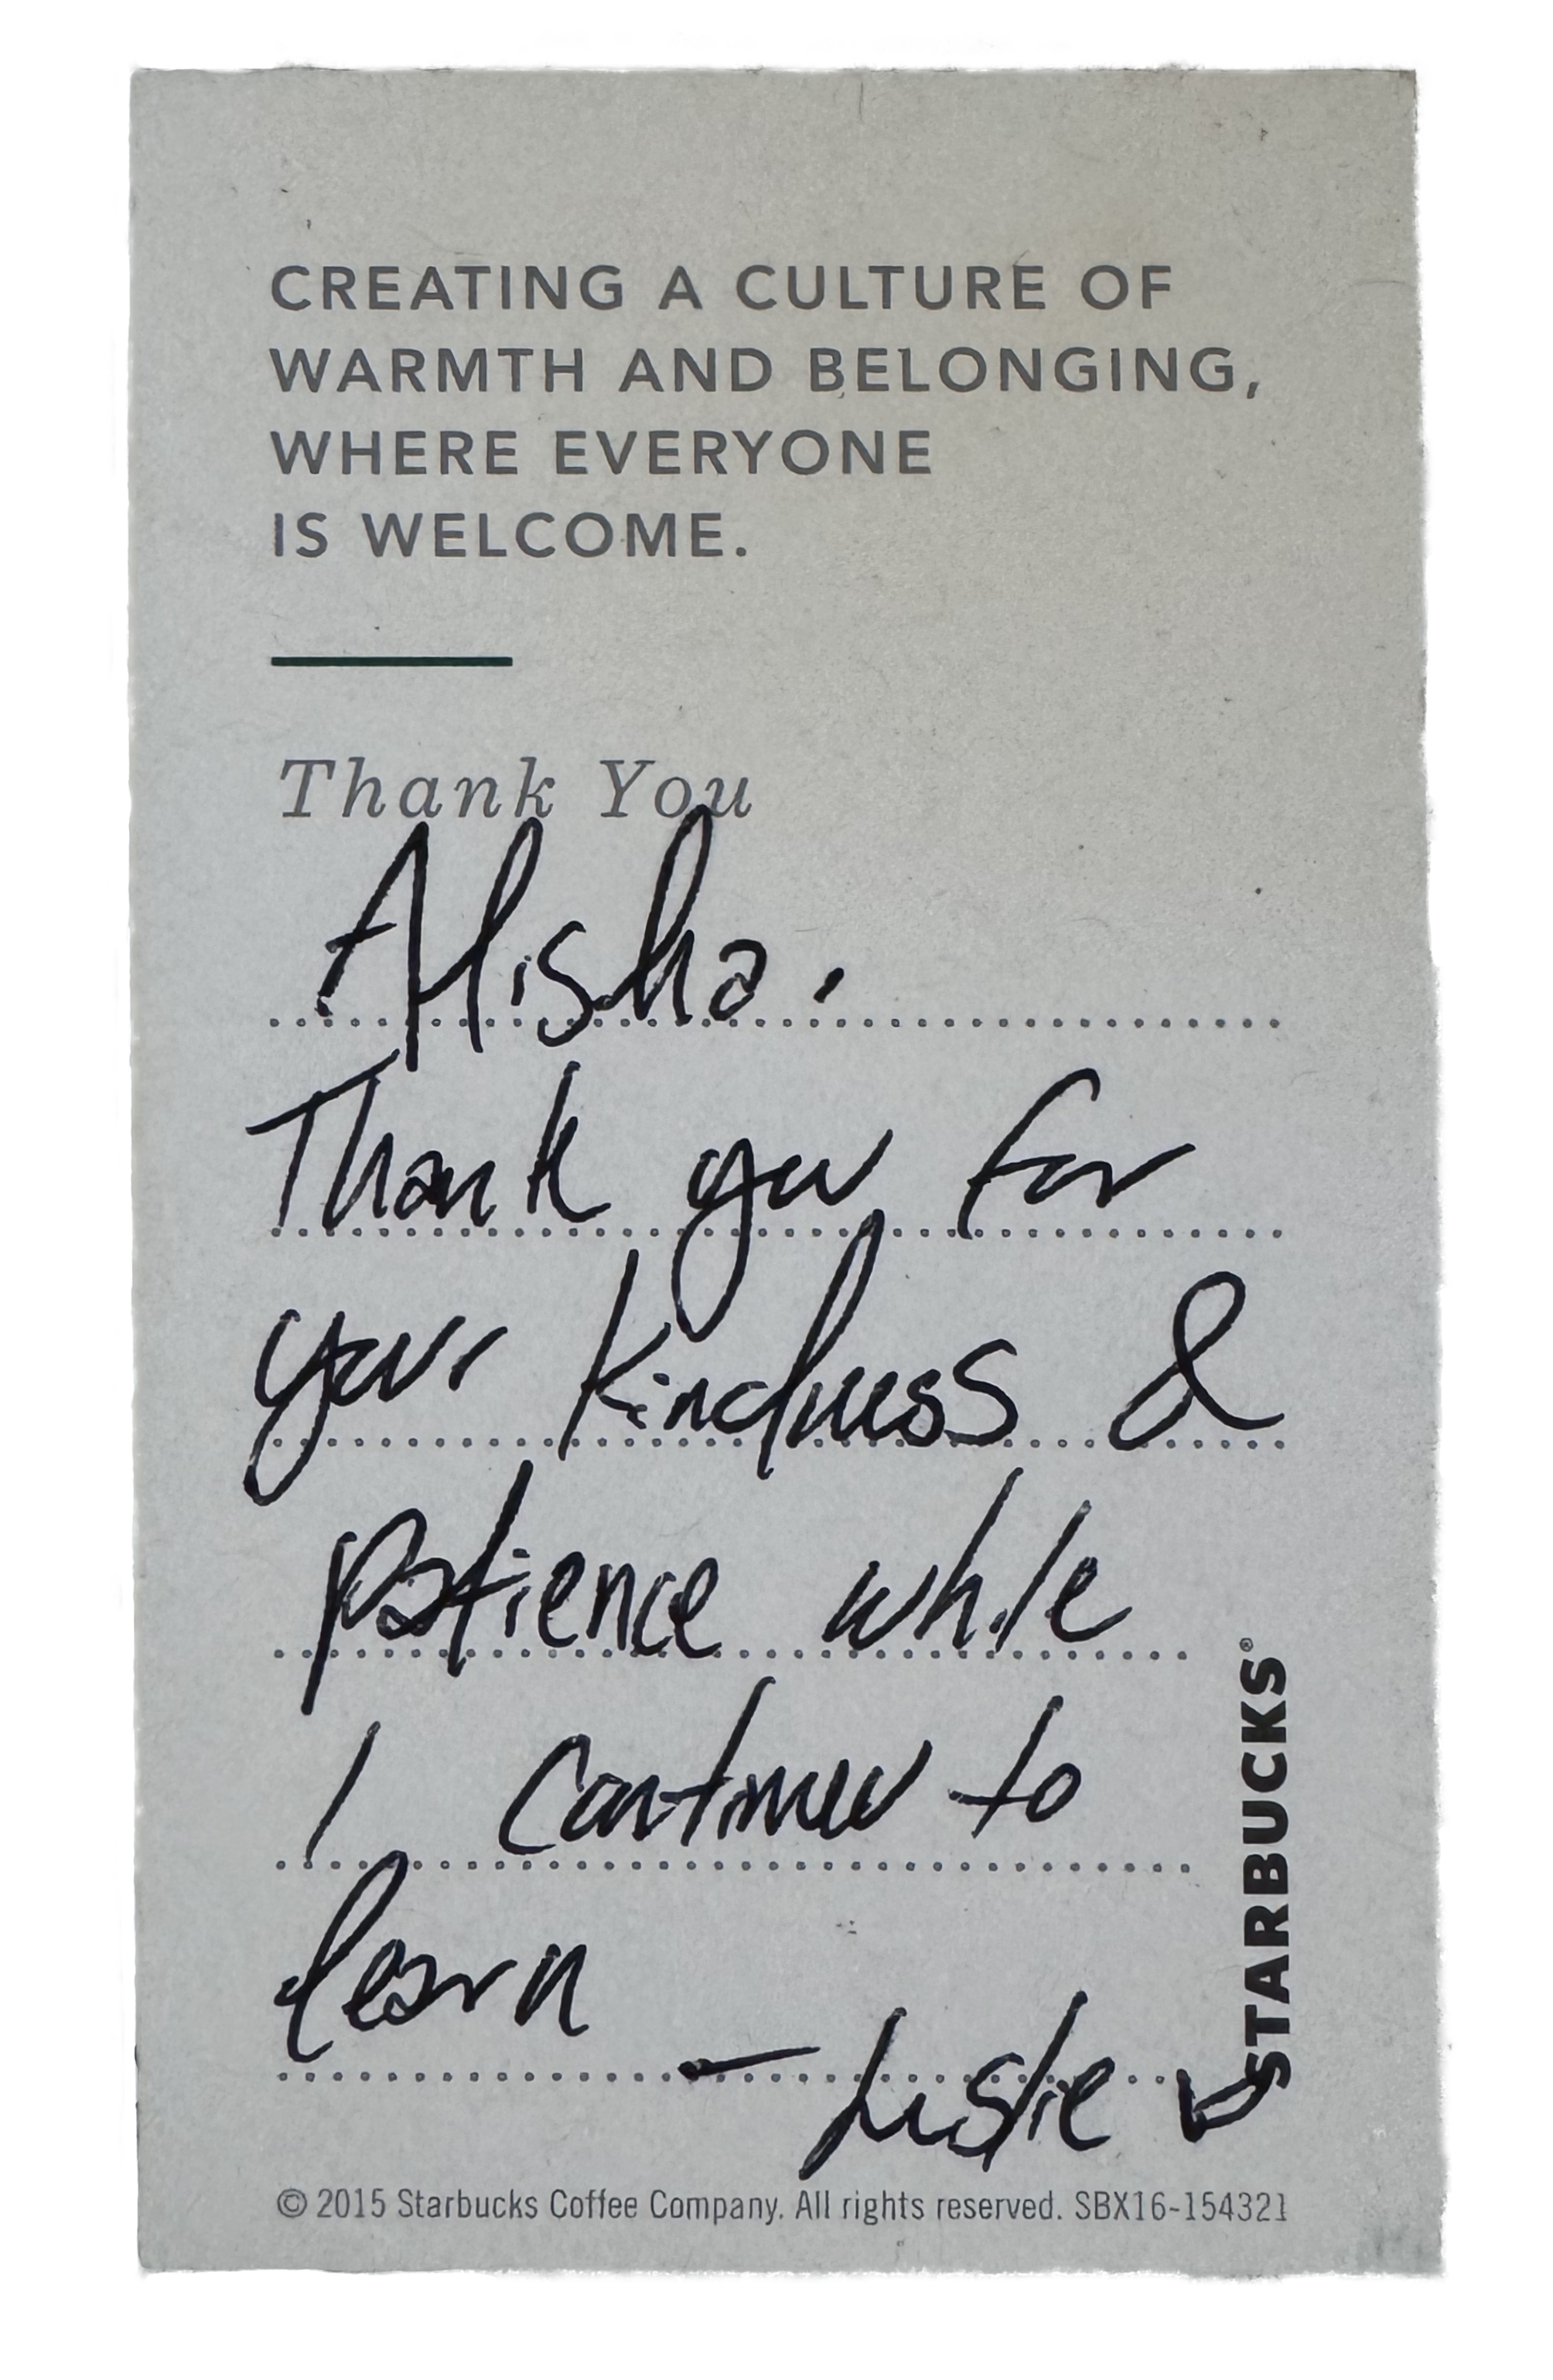 CREATING A CULTURE OF
WARMTH AND BELONGING,
WHERE EVERYONE
IS WELCOME.
Thank You
Alisha,
Thank you for
your kindness &
patience while
I continue to
learn
— Leslie
STARBUCKS®
© 2015 Starbucks Coffee Company. All rights reserved. SBX16-154321